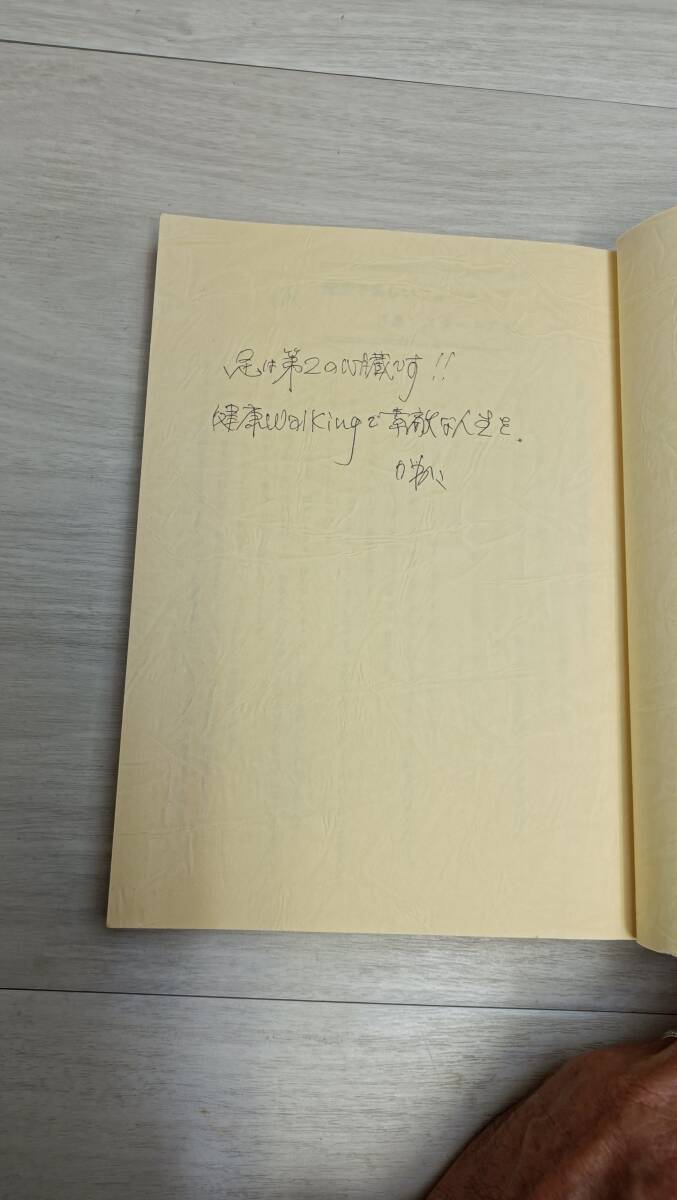 足は第2の心臓です!!
健康Walkingで素敵な人生を.